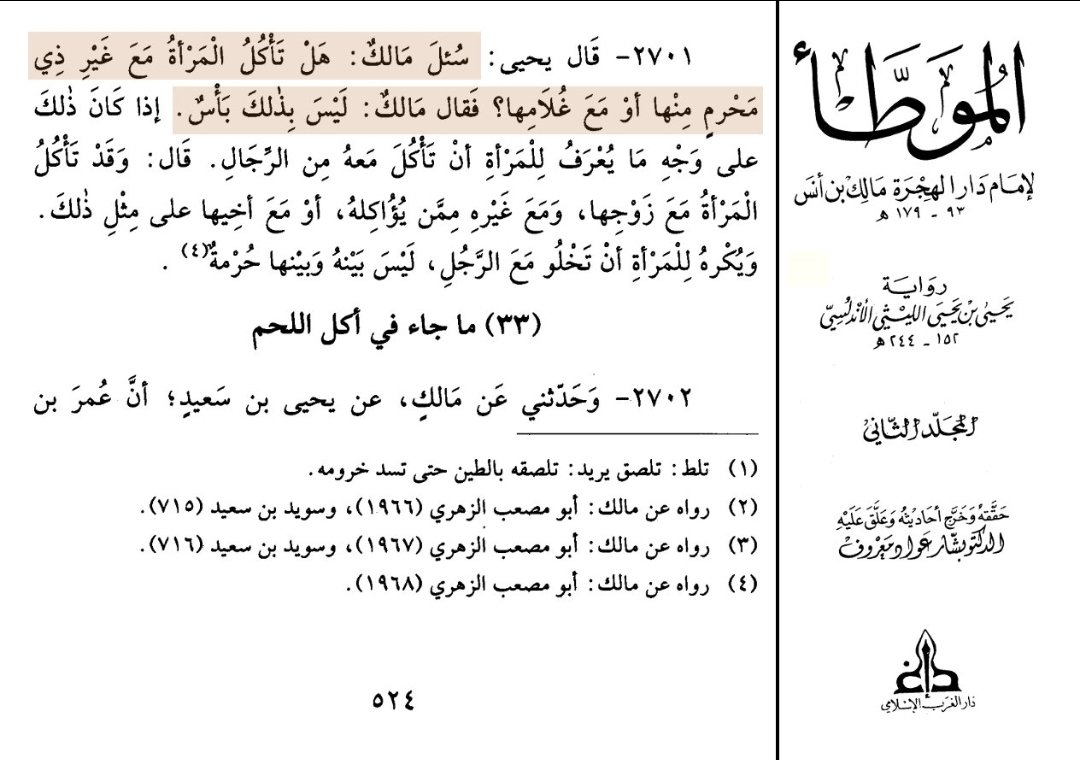 ٢٧٠١- قَال يحيى: سُئلَ مَالكٌ: هَلْ تَأْكُلُ الْمَرْأةُ مَعَ غَيْرِ ذِي
مَحْرمٍ مِنْها أوْ مَعَ غُلَامِها؟ فَقال مَالكٌ: لَيْسَ بِذٰلكَ بَأْسٌ. إذا كَانَ ذٰلكَ
على وَجْهِ مَا يُعْرَفُ لِلْمَرْأةِ أنْ تَأْكُلَ مَعهُ مِن الرِّجَالِ. قَال: وَقَدْ تَأْكُلُ
الْمَرْأةُ مَعَ زَوْجِها، وَمَعَ غَيْرِه مِمَّن يُؤَاكِلهُ، أوْ مَعَ أخِيها على مِثْلِ ذٰلكَ.
وَيُكْرهُ لِلْمَرْأةِ أنْ تَخْلُو مَعَ الرَّجُلِ، لَيْسَ بَيْنهُ وَبَيْنها حُرْمةٌ(٤).
(٣٣) ما جاء في أكل اللحم
٢٧٠٢- وَحَدّثني عَن مَالكٍ، عن يحيى بن سَعيدٍ؛ أنَّ عُمرَ بن
(١) تلط: تلصق يريد: تلصقه بالطين حتى تسد خرومه.
(٢) رواه عن مالك: أبو مصعب الزهري (١٩٦٦)، وسويد بن سعيد (٧١٥).
(٣) رواه عن مالك: أبو مصعب الزهري (١٩٦٧)، وسويد بن سعيد (٧١٦).
(٤) رواه عن مالك: أبو مصعب الزهري (١٩٦٨).
٥٢٤
المُوَطَّأ
لإمَام دَار الهِجْرَة مَالِك بن أنَس
٩٣ - ١٧٩ هـ
رِوَايَة
يَحيىٰ بن يَحيَى اللَّيثي الأَندَلُسِيّ
١٥٢ - ٢٤٤ هـ
المُجَلّد الثَّاني
حَقَّقَهُ وَخَرَّج أحَاديثَهُ وَعَلَّقَ عَلَيْهِ
الدكتور بشّار عَوّاد مَعرُوف
دار الغرب الإسلامي